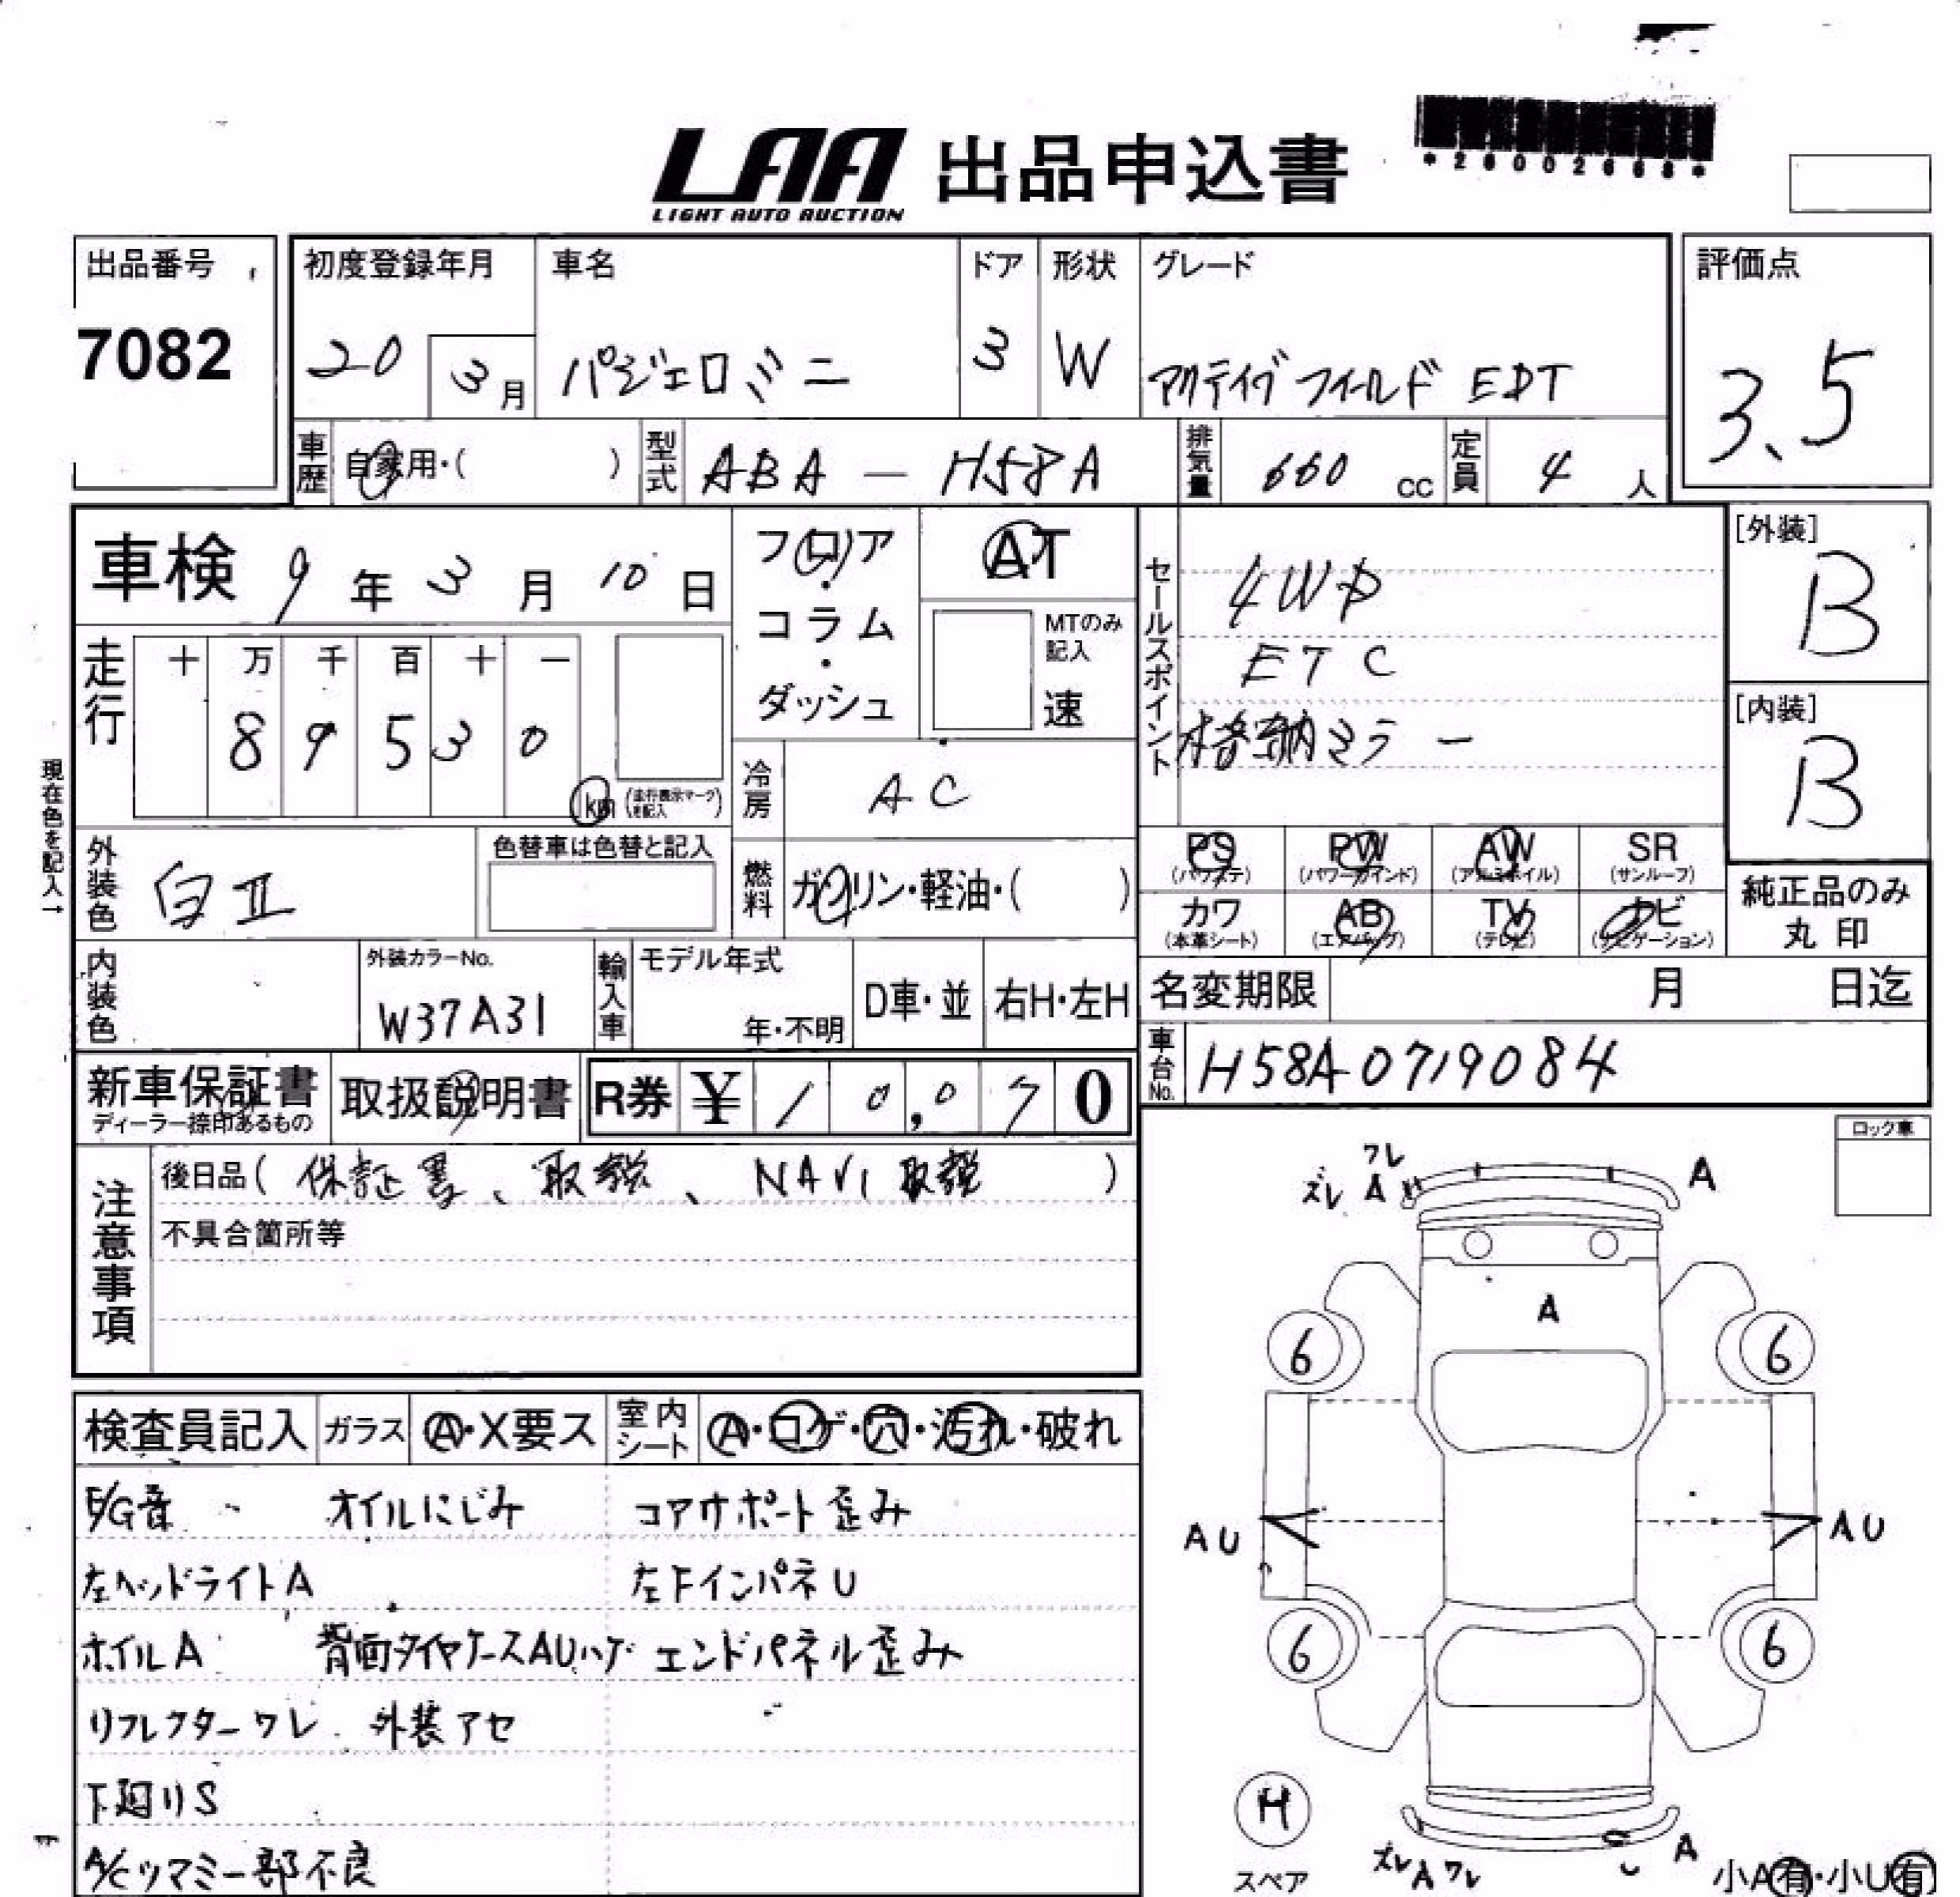 LAA 出品申込書
LIGHT AUTO AUCTION
*26002663*
出品番号
7082
初度登録年月
20 3月
車名
パジェロミニ
ドア
3
形状
W
グレード
アクティブフィールド EDT
評価点
3.5
車歴 自家用・( )
型式 ABA - H58A
排気量 660 cc
定員 4 人
車検 9年3月10日
フロア・コラム・ダッシュ
AT
MTのみ記入
速
セールスポイント
4WD
ETC
格納ミラー
[外装]
B
[内装]
B
走行
十 万 千 百 十 一
8 9 5 3 0
km (走行表示マークを記入)
現在色を記入→
冷房 AC
外装色 白II
色替車は色替と記入
燃料 ガソリン・軽油・( )
PS (パワステ) PW (パワーウインド) AW (アルミホイル) SR (サンルーフ)
カワ (本革シート) AB (エアバッグ) TV (テレビ) ナビ (ナビゲーション)
純正品のみ丸印
内装色
外装カラーNo.
W37A31
輸入車 モデル年式
年・不明
D車・並 右H・左H
名変期限 月 日迄
車台No. H58A0719084
新車保証書
ディーラー捺印あるもの
取扱説明書
R券 ¥10,070
注意事項
後日品( 保証書、取説、NAVI取説 )
不具合箇所等
ロック車
検査員記入 ガラス A・X要ス 室内シート A・コゲ・穴・汚れ・破れ
E/G音 オイルにじみ コアサポート歪み
左ヘッドライトA 左FインパネU
ホイルA 背面タイヤケースAUハゲ エンドパネル歪み
リフレクターワレ 外装アセ
下廻りS
A/Cツマミ一部不良
ワレ
ズレ A
A
A
6 6
AU AU
6 6
H
スペア
ズレ A ワレ
U A
小A有・小U有